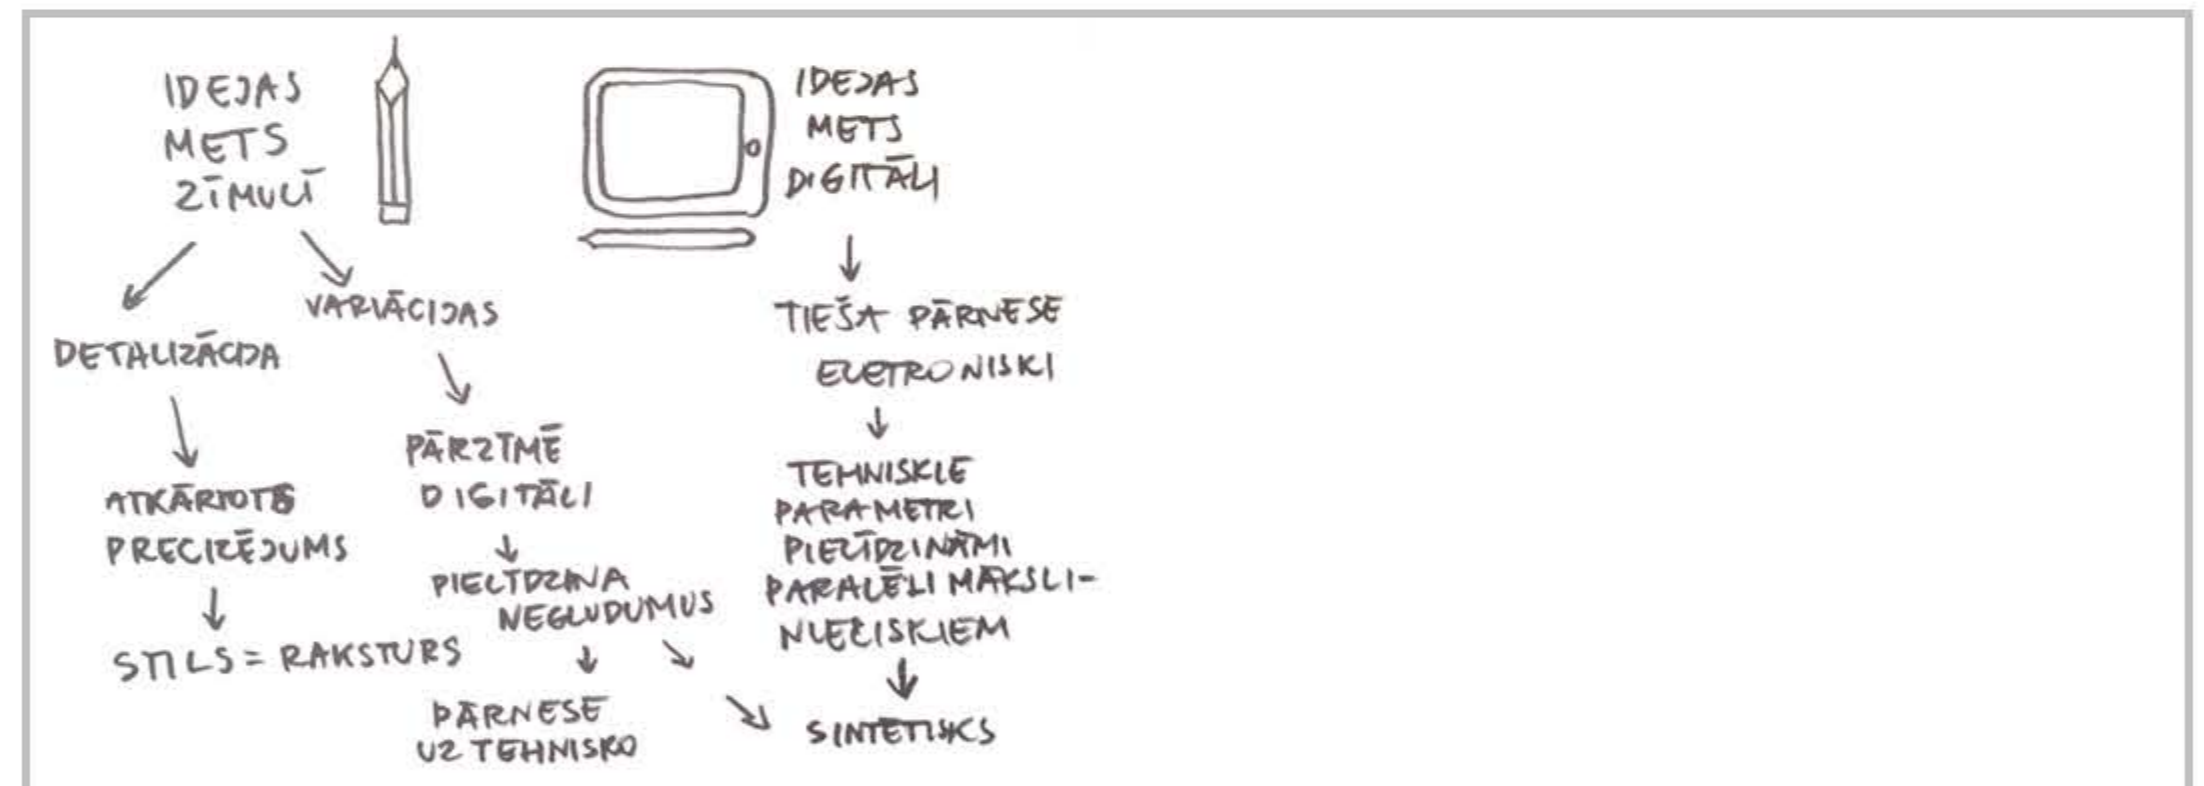 IDEJAS
METS
ZĪMULĪ
IDEJAS
METS
DIGITĀLI
DETALIZĀCIJA
ATKĀRTOTS
PRECIZĒJUMS
STILS = RAKSTURS
VARIĀCIJAS
PĀRZĪMĒ
DIGITĀLI
PIELĪDZINA
NEGLUDUMUS
PĀRNESE
UZ TEHNISKO
TIEŠA PĀRNESE
ELETRONISKI
TEHNISKIE
PARAMETRI
PIELĪDZINĀMI
PARALĒLI MĀKSLI-
NIECISKIEM
SINTĒTISKS